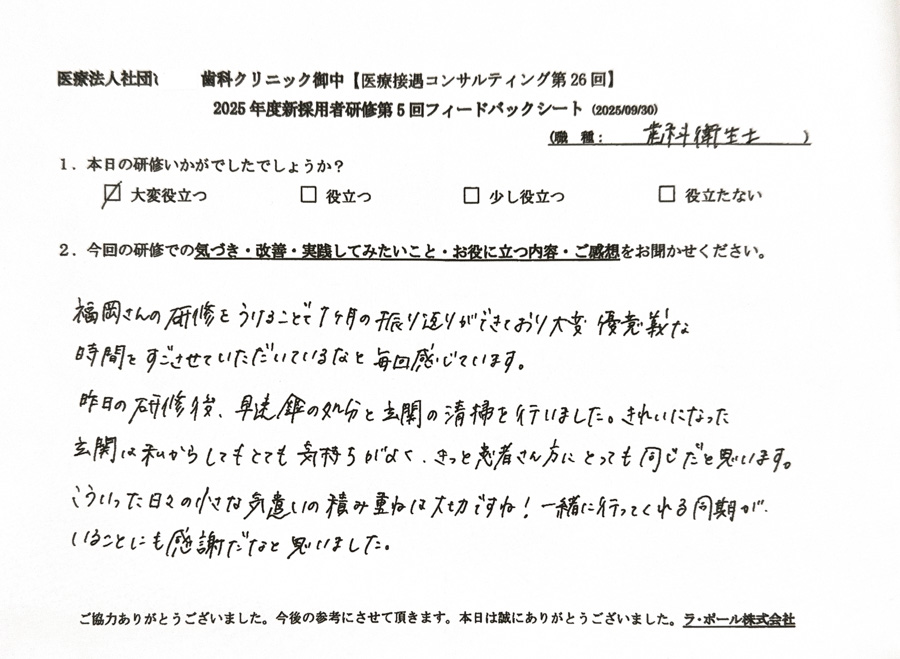 医療法人社団 歯科クリニック御中【医療接遇コンサルティング第26回】
2025年度新採用者研修第5回フィードバックシート (2025/09/30)
(職 種: 歯科衛生士 )
1．本日の研修いかがでしたでしょうか？
☑ 大変役立つ □ 役立つ □ 少し役立つ □ 役立たない
2．今回の研修での気づき・改善・実践してみたいこと・お役に立つ内容・ご感想をお聞かせください。
福岡さんの研修をうけることで1ヶ月の振り返りができており大変優意義な
時間をすごさせていただいているなと毎回感じています。
昨日の研修後、早速傘の処分と玄関の清掃を行いました。きれいになった
玄関は私からしてもとても気持ちがよく、きっと患者さん方にとっても同じだと思います。
こういった日々の小さな気遣いの積み重ねは大切ですね！一緒に行ってくれる同期が、
いることにも感謝だなと思いました。
ご協力ありがとうございました。今後の参考にさせて頂きます。本日は誠にありがとうございました。ラ・ポール株式会社